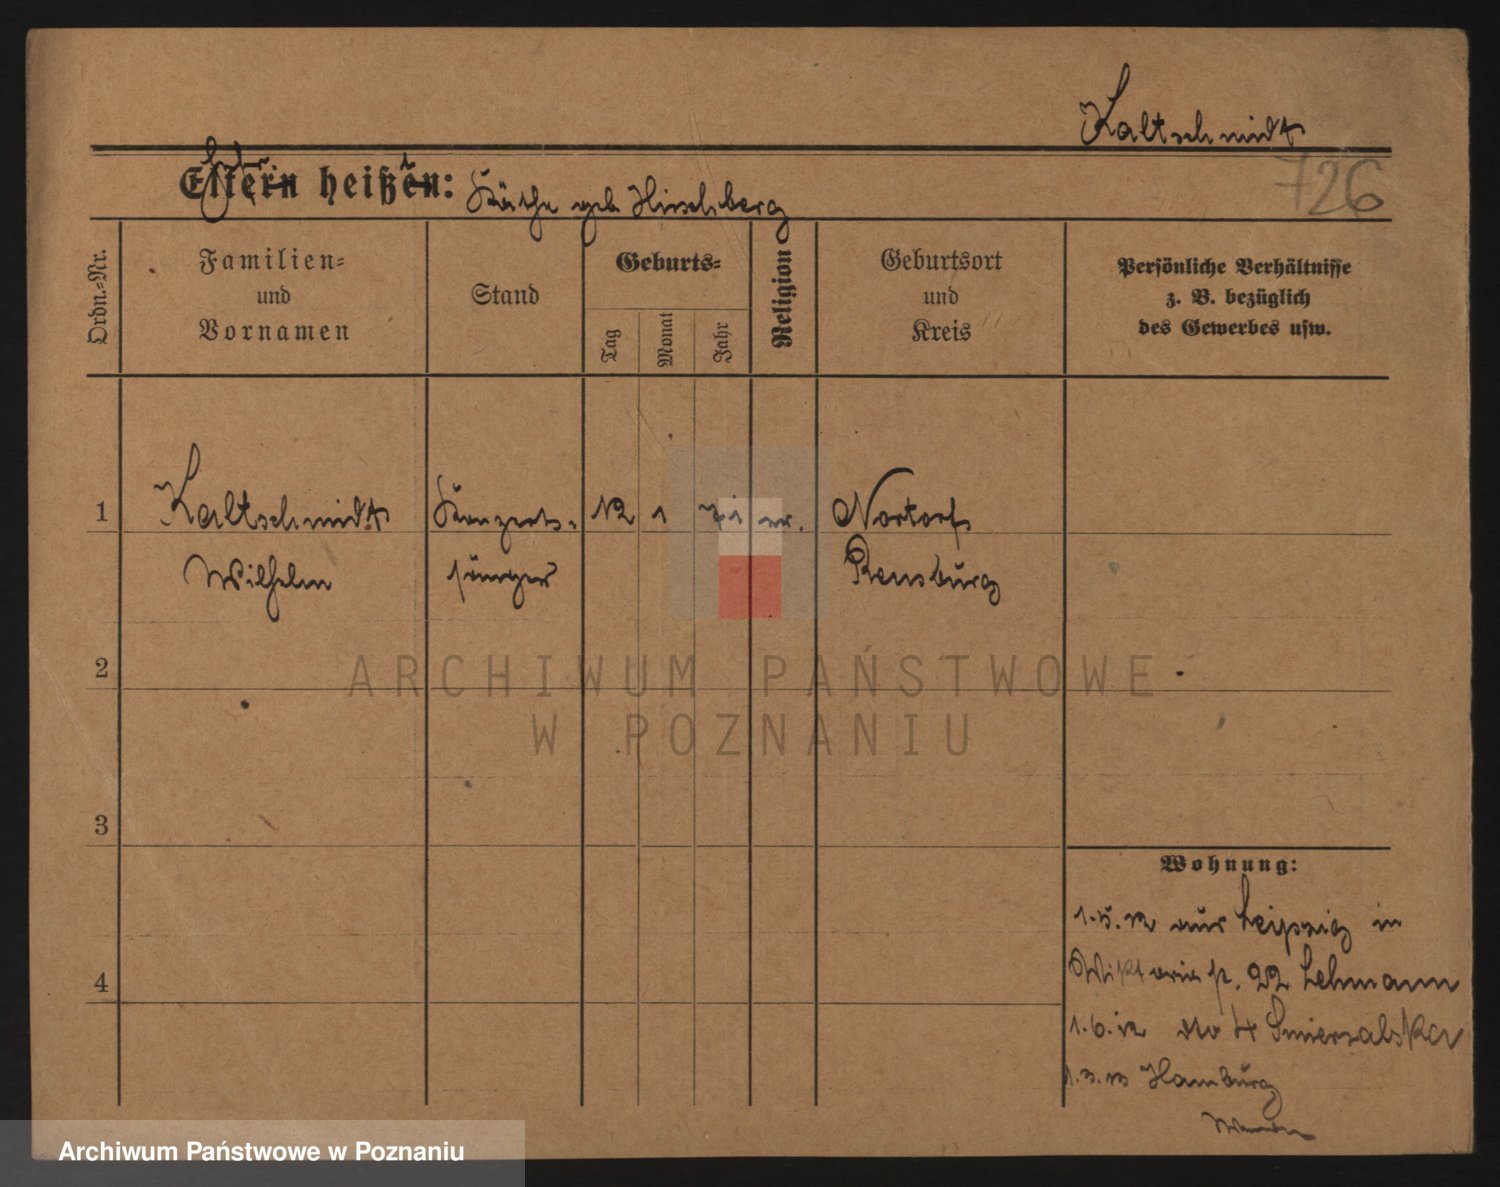 Kaltschmidt
726
Eltern heißen: Käthe geb Hirschberg
Ordn.=Nr.
Familien=
und
Vornamen
Stand
Geburts=
Tag
Monat
Jahr
Religion
Geburtsort
und
Kreis
Persönliche Verhältnisse
z. B. bezüglich
des Gewerbes usw.
1 Kaltschmidt Konzert- 12 1 71 ev. Nortorf
Wilhelm sänger Rensburg
2
3
4
Wohnung:
1.5.12 aus Leipzig in
Viktoria 22 Lehmann
1.6.12 4 Smierzalska
Hamburg
ARCHIWUM PAŃSTWOWE
W POZNANIU
Archiwum Państwowe w Poznaniu